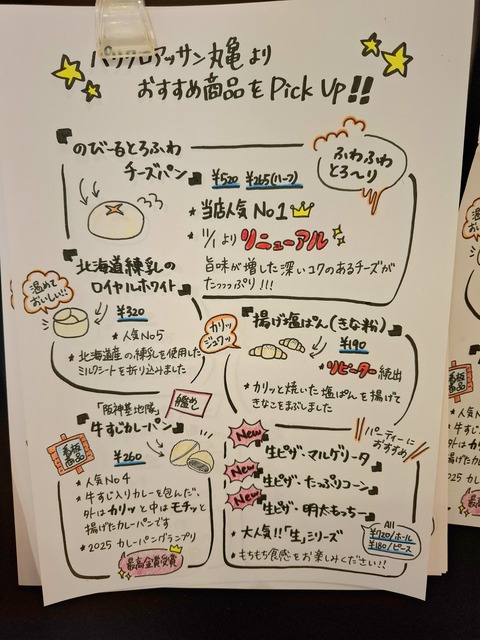 パリクロアッサン丸亀より
おすすめ商品をPick Up!!
のびーるとろふわ
チーズパン
¥520 ¥265(ハーフ)
ふわふわ
とろ〜り
★当店人気No1
★11/1より リニューアル
旨味が増した深いコクのあるチーズが
たっっっぷり!!!
北海道練乳の
ロイヤルホワイト
温めて
おいしい!!
¥320
★人気No5
★北海道産の練乳を使用した
ミルクシートを折り込みました
カリッ
ジュワッ
揚げ塩ぱん(きな粉)
¥190
★リピーター続出
★カリッと焼いた塩ぱんを揚げて
きなこをまぶしました
「阪神基地隊」
艦めし
牛すじカレーパン
看板
商品
¥260
★人気No4
★牛すじ入りカレーを包んだ、
外はカリッと中はモチッと
揚げたカレーパンです
★2025 カレーパングランプリ
最高金賞受賞
パーティーに
おすすめ
New
生ピザ・マルゲリータ
New
生ピザ・たっぷりコーン
New
生ピザ・明太もっちー
★大人気!!「生」シリーズ
★もちもち食感をお楽しみください!!
All
¥720/ホール
¥180/ピース